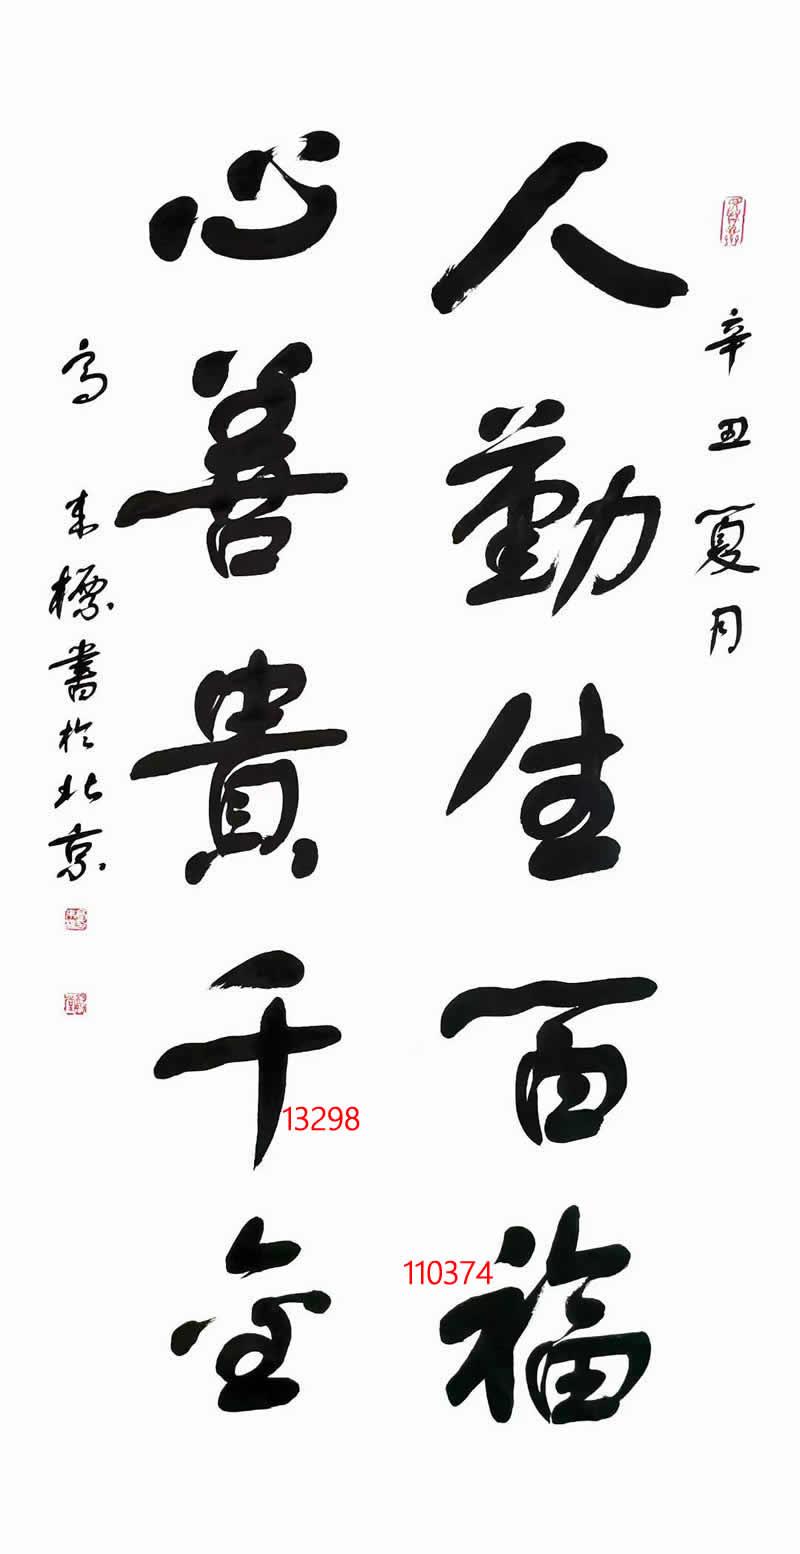 辛丑夏月
人勤生百福
心善貴千金
高来標書於北京
110374
13298